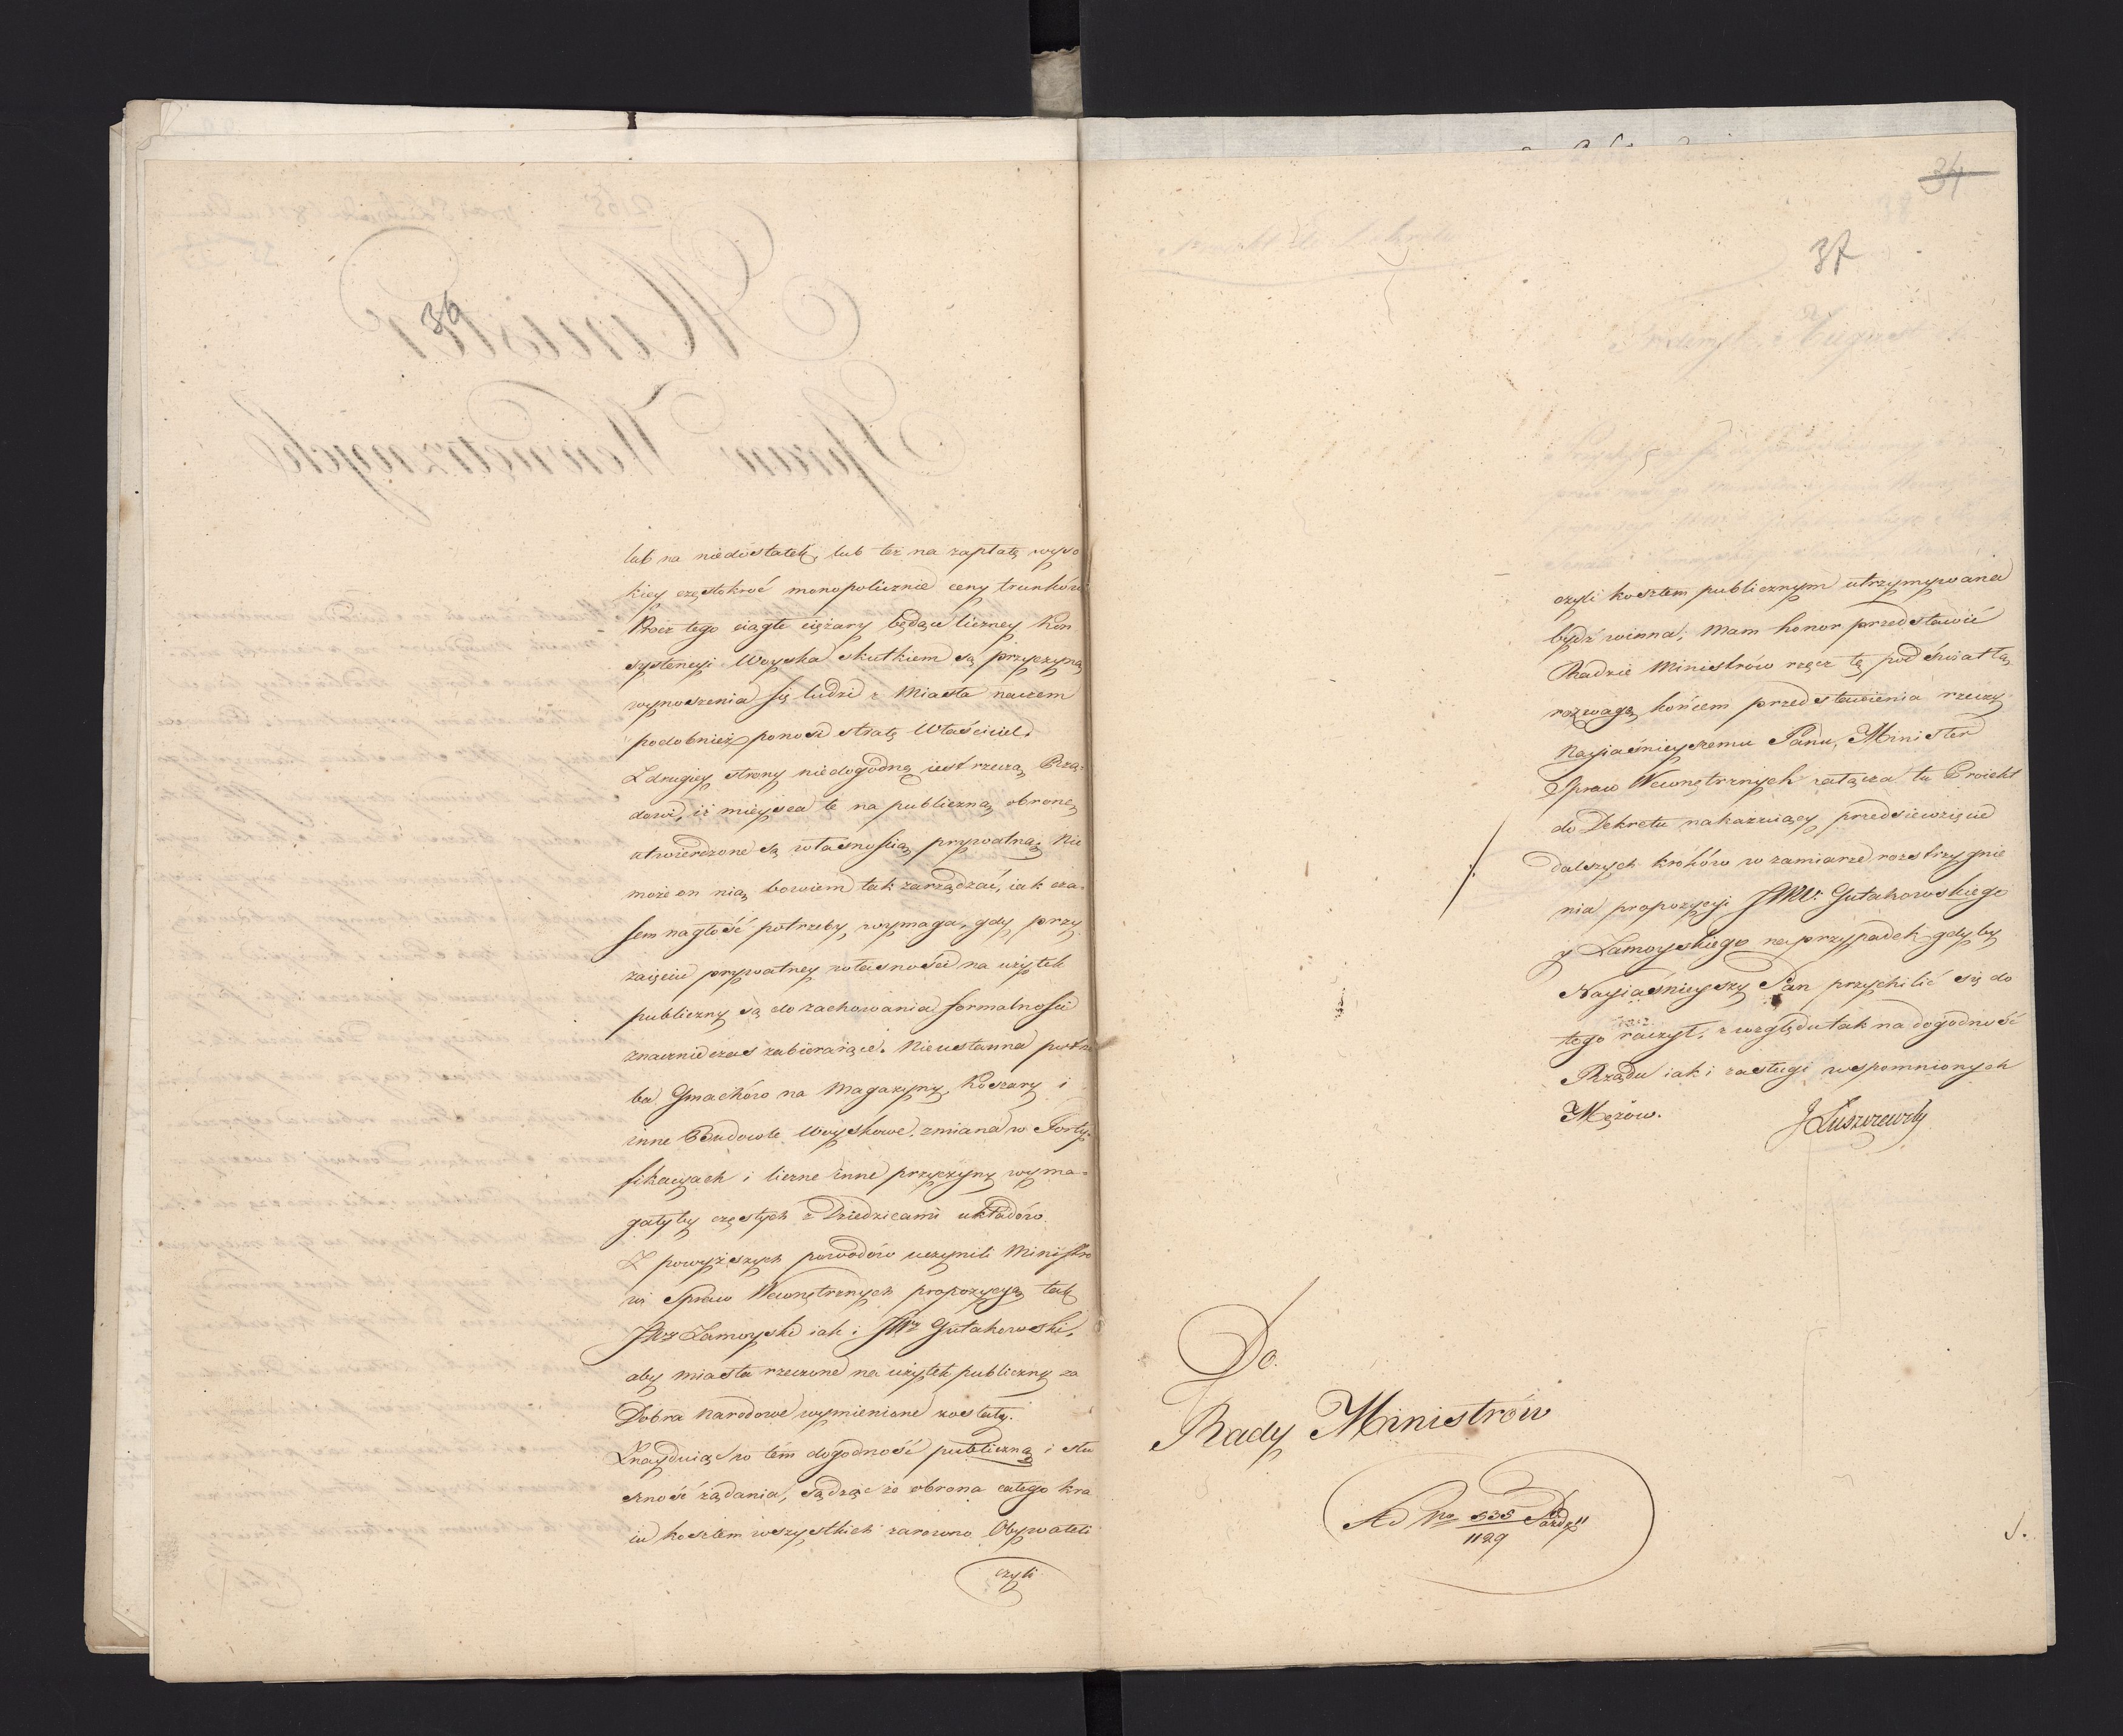 36
lub na niedostatek, lub też na zapłatę wyso
kiey częstokroć monopolicznie ceny trunków.
Prócz tego ciągłe ciężary będące liczney Kon
systencyi Woyska skutkiem są przyczyną
wynoszenia się ludzi z Miasta naczem
podobnież ponosi stratę Właściciel.
Z drugiey strony niedogodną iest rzeczą Rzą-
dowi, iż mieysca te na publiczną obronę
utwierdzone są własnością prywatną. Nie
może on nią bowiem tak zarządzać, iak cza-
sem nagłość potrzeby wymaga, gdy przy
zaięciu prywatney własności na użytek
publiczny są do zachowania formalności
znacznie czas zabieraiące. Nieustanna potrze
ba Gmachów na Magazyny, Koszary i
inne Budowle Woyskowe, zmiana w Forty-
fikacyach i liczne inne przyczyny wyma-
gałyby częstych z Dziedzicami układów.
Z powyższych powodów uczynili Ministro
wi Spraw Wewnętrznych propozycyą tak
JW Zamoyski iak i JW Gutakowski,
aby miasta rzeczone na użytek publiczny za
Dobra Narodowe wymienione zostały.
Znayduiąc w tém dogodność publiczną i słu
szność żądania, sądząc że obrona całego kra
iu kosztem wszystkich zarowno Obywateli
czyli
34
37
czyli kosztem publicznym utrzymywana
bydź winna; Mam honor przedstawić
Radzie Ministrów rzecz tę pod światłą
rozwagę, końcem przedstawienia rzeczy
Nayiaśnieyszemu Panu, Minister
Spraw Wewnętrznych załącza tu Proiekt
do Dekretu nakazuiący przedsięwzięcie
dalszych kroków w zamiarze rozstrzygnie
nia propozycyi JWW. Gutakowskiego
y Zamoyskiego na przypadek gdyby
Nayiaśnieyszy Pan przychilić się do
tego raczył, z względu tak na dogodność
Rządu iak i zasługi wspomnionych
Mężów.
JŁuszczewsky
Do
Rady Ministrów
Ad No 535
1129